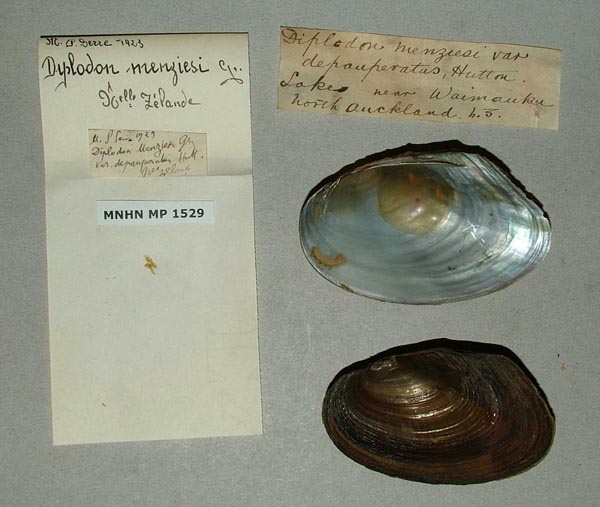 Dyplodon menziesi Gr.
Nelle Zélande
1929
Diplodon Menziesi Gr
var. depauperatus Hutt.
MNHN MP 1529
Diplodon menziesi var
depauperatus, Hutton.
Lakes near Waimauku
north auckland. n.z.